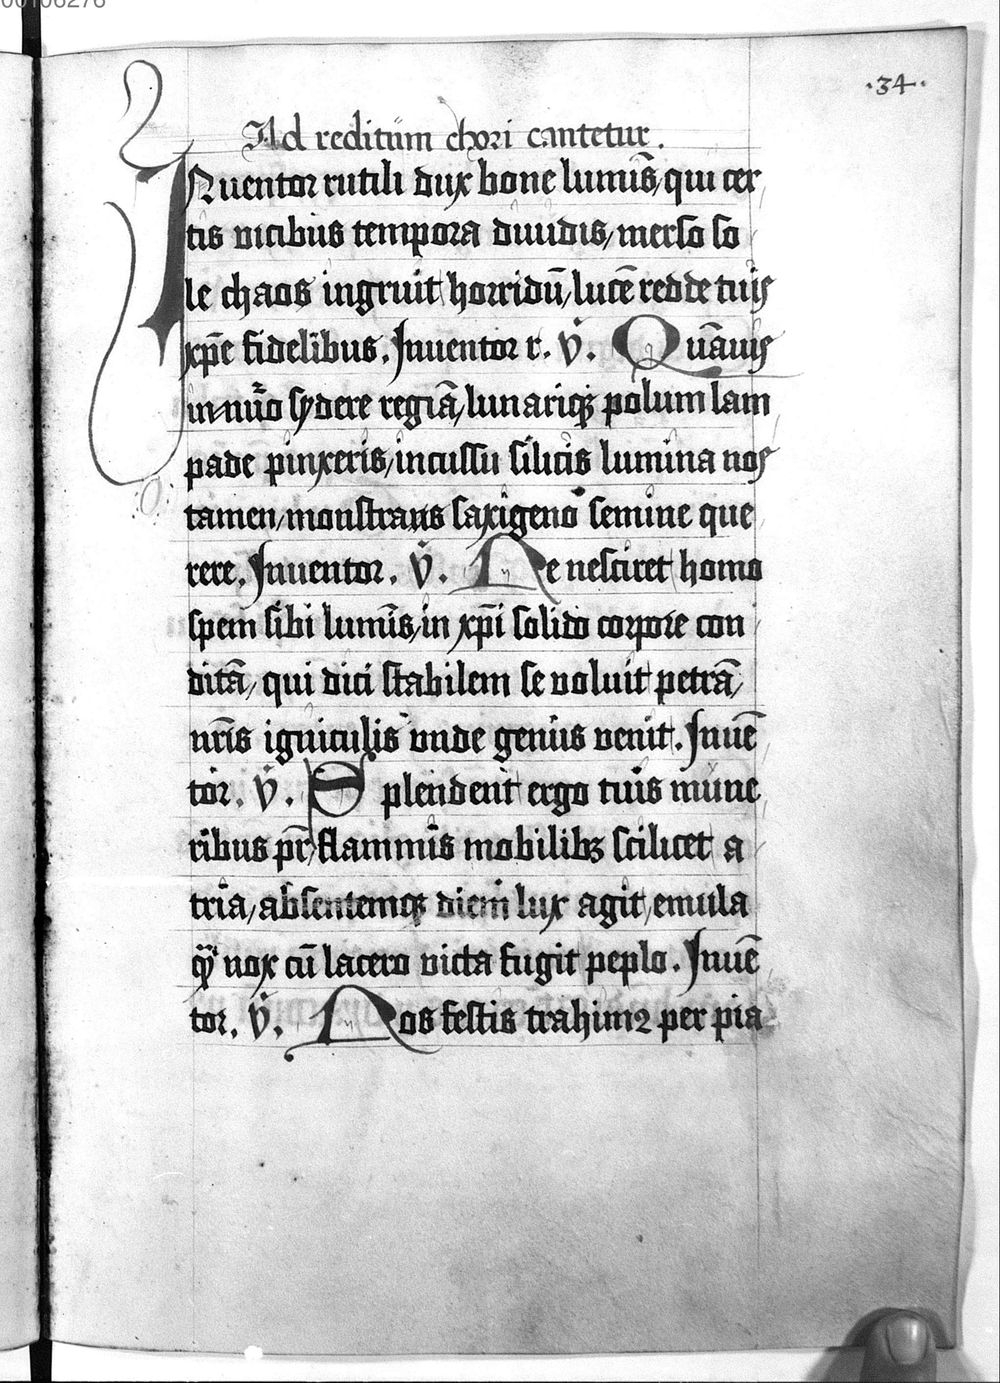 00106276
·34·
Ad reditum chori cantetur.
INuentor rutili dux bone lumīs, qui cer
tis vicibus tempora diuidis, merso so
le chaos ingruit horridū, lucē redde tuis
xp̄e fidelibus. Inuentor r. v̄. Quāuis
innūo sydere regiā, lunariqꝫ polum lam
pade pinxeris, incussu silicis lumina nos
tamen, monstrans saxigeno semine que
rere. Inuentor. v̄. Ne nesciret homo
spem sibi lumīs, in xp̄i solido corpore con
ditā, qui dici stabilem se voluit petrā,
nr̄is igniculis vnde genus venit. Inuē
tor. v̄. Splendent ergo tuis mune
ribus pr̄ flammis mobilibꝫ scilicet a
tria, absentemqꝫ diem lux agit, emula
nox cū lacero victa fugit peplo. Inuē
tor. v̄. Nos festis trahimꝰ per pia